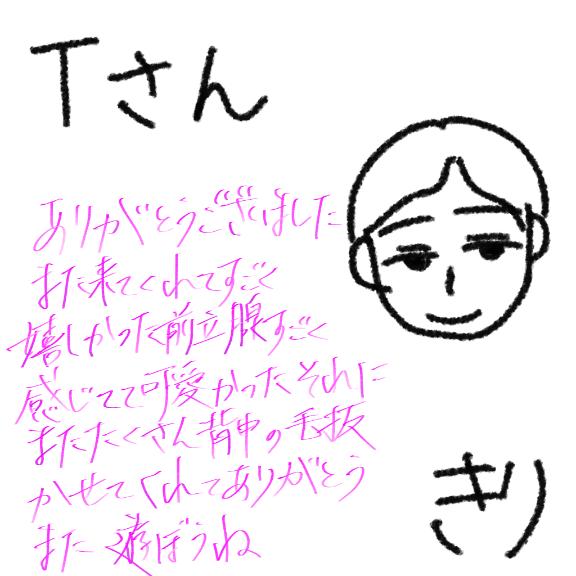 Tさん
ありがとうございました
また来てくれてすごく
嬉しかった前立腺すごく
感じてて可愛かったそれに
またたくさん背中の毛抜
かせてくれてありがとう
また遊ぼうね
きり